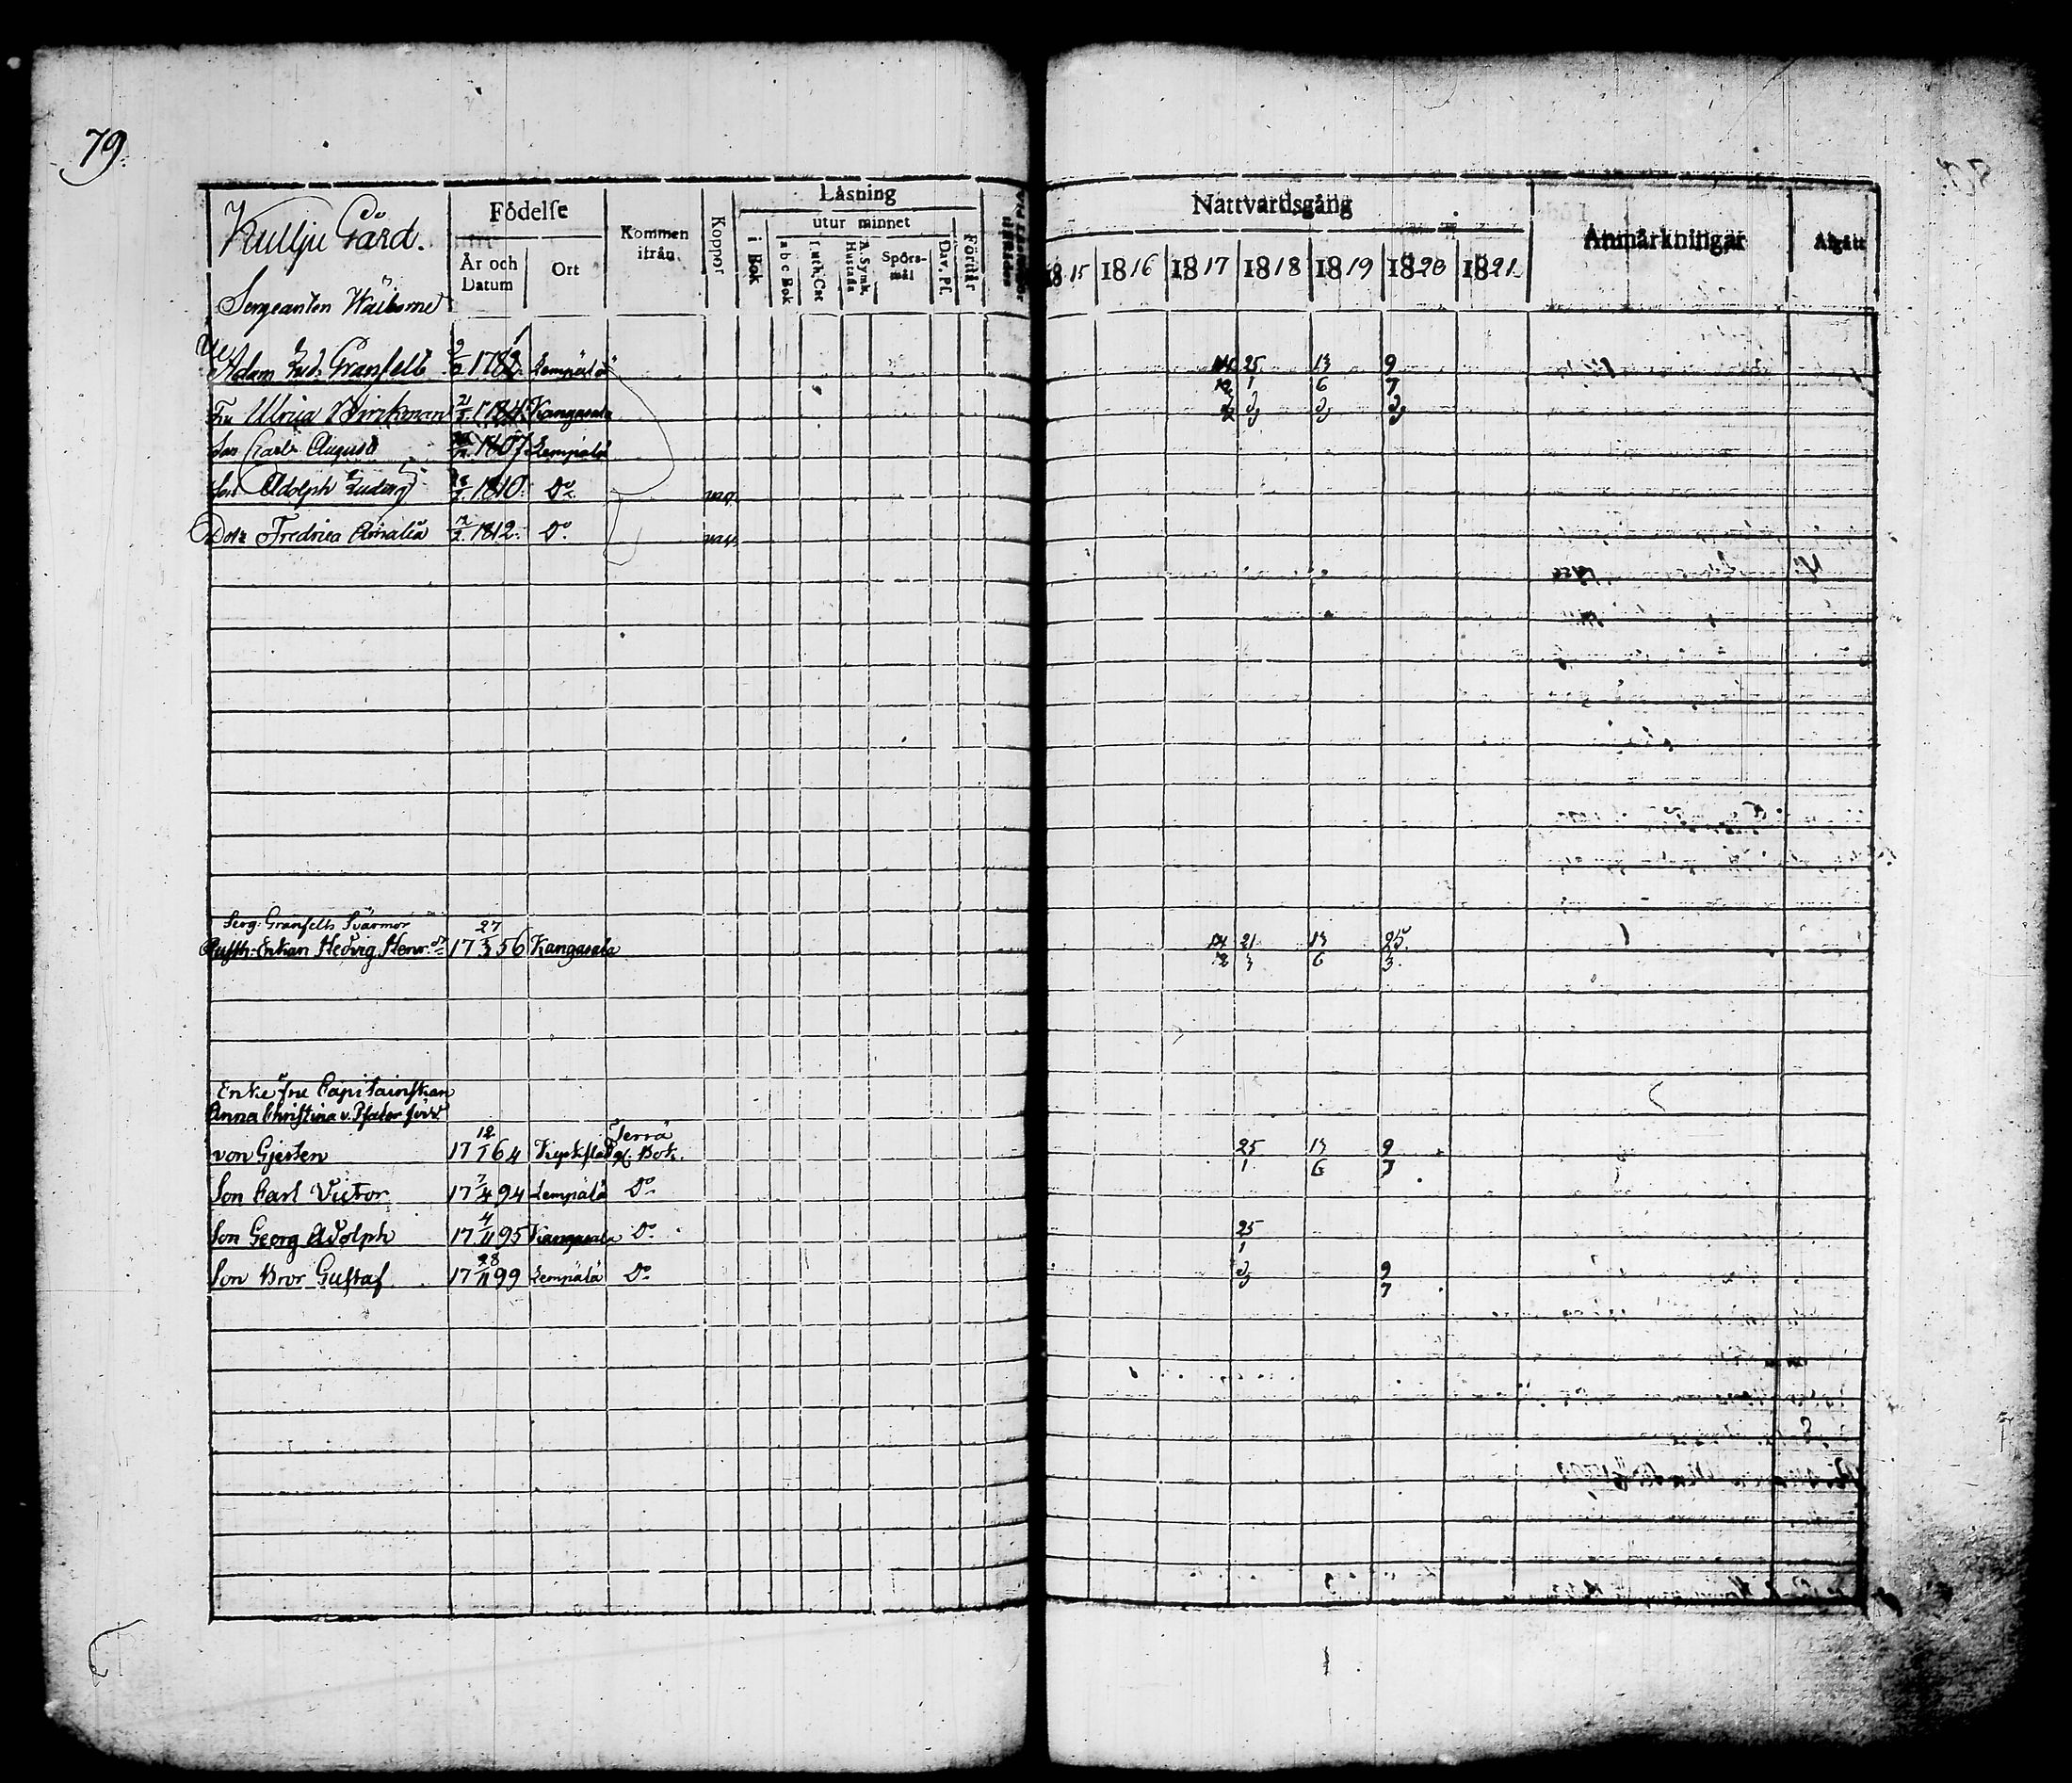 79.
Kullju Gård.
Födelse
År och Datum
Ort
Kommen ifrån
Koppor
Läsning
i Bok
utur minnet
a b c Bok
Luth. Cat
A. Symb. Hustafla
Spörsmål
Dav. Ps.
Förstår
Nattvardsgång
1815 1816 1817 1818 1819 1820 1821
Anmärkningar
Afgått
Sergeanten Wälborne
Adam Lud. Granfelt 178 Lempälä 25 13 9
1 6 7
Fru Ulrica Brinkman Kangasala Do Do Do
Son Carl August 1807 Lempälä
Son Adolph Ludvig 1810 Do
Dotr Fredrica Amalia 1812. Do
Serg. Granfelts Svärmor
Enkan Hedvig Henr. 17 27/3 56 Kangasala 21 13 25
3 6 3
Enke Fru Capitainskan
Anna Christina v. Pfaler född
von Gjerten 17 12/1 64 Kyrkslätt Förra gl. Bok. 25 13 9
1 6 7
Son Carl Victor 17 7/4 94 Lempälä Do
Son Georg Adolph 17 4/11 95 Kangasala Do 25
1
Son Bror Gustaf 17 28/11 99 Lempälä Do Do 9
7